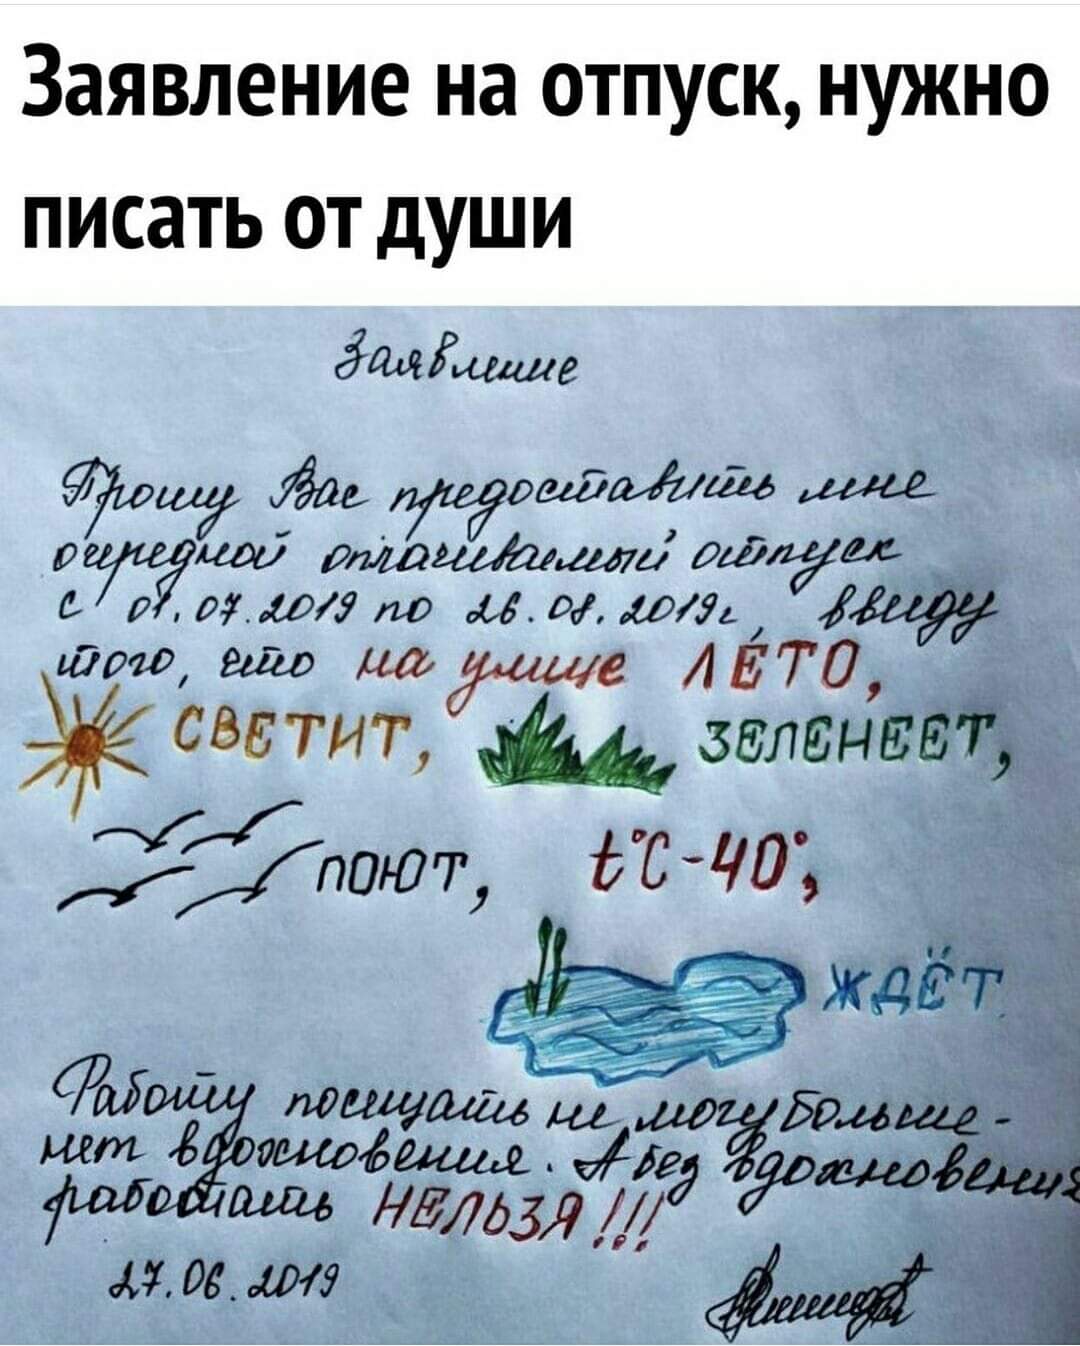 Заявление на отпуск, нужно
писать от души
Заявление
Прошу Вас предоставить мне
очередной оплачиваемый отпуск
с 01.07.2019 по 26.07.2019г, ввиду
того, что на улице ЛЕТО,
СВЕТИТ, ЗЕЛЕНЕЕТ,
ПОЮТ, t°C-40°,
ЖДЁТ.
Работу посещать не могу больше -
нет вдохновения. А без вдохновения
работать НЕЛЬЗЯ!!!
27.06.2019